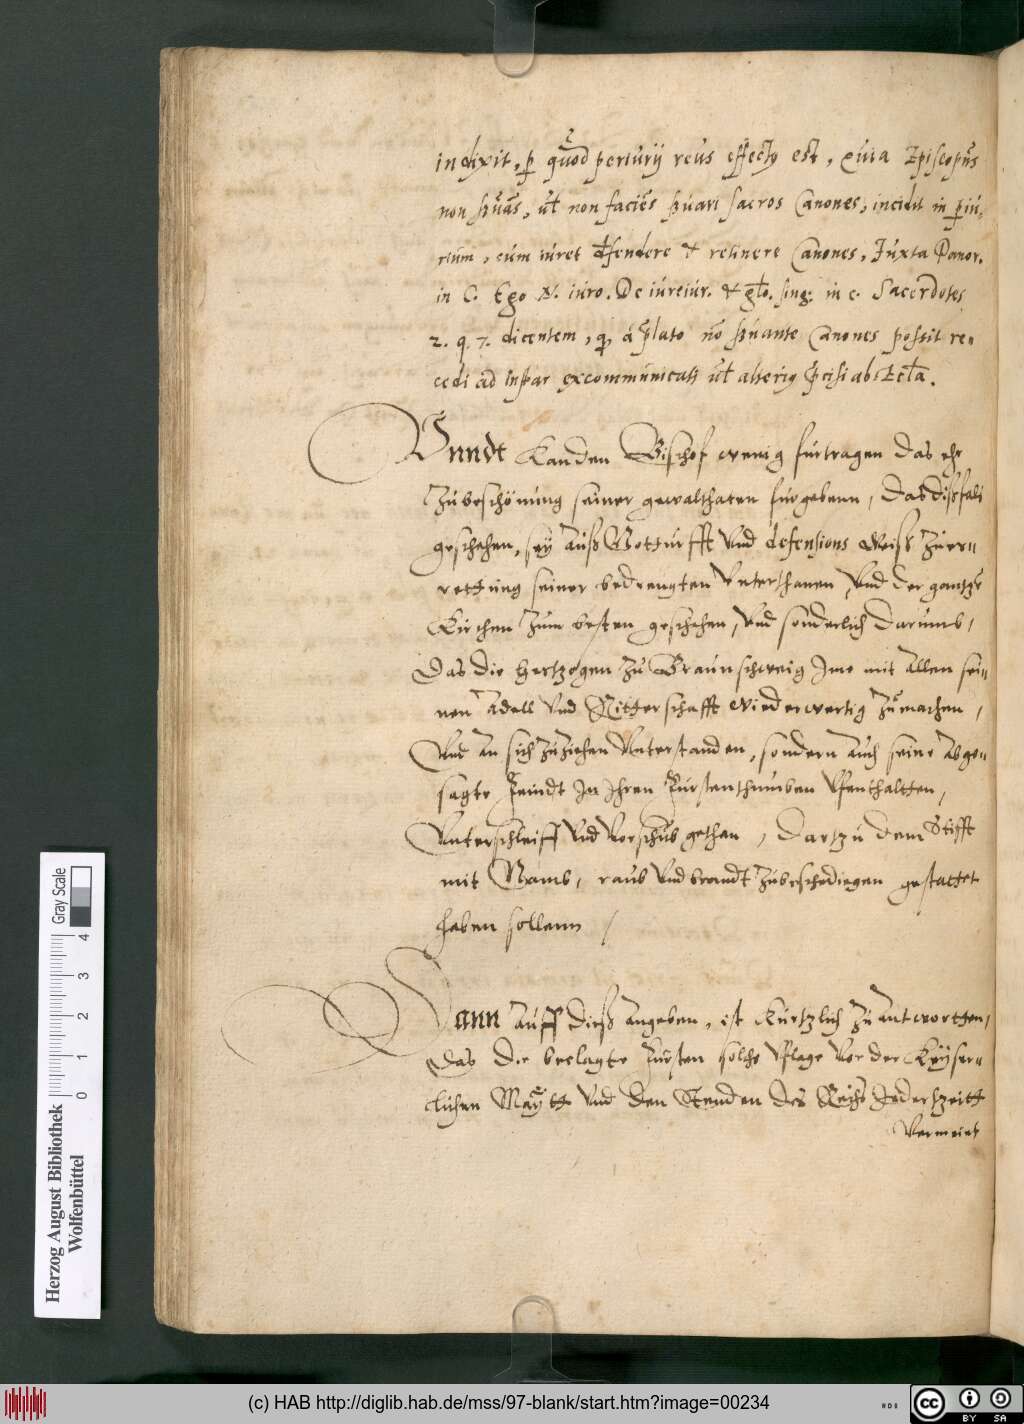 indixit, ꝑ quod periurij reus effectꝰ est, quia Episcopus
non sṕuās, ut non facies sṕuari sacros Canones, incidit in ꝑiu-
rium, cum iuret defendere & retinere Canones, Juxta Panor.
in C. Ego N. iuro. De iureiur. & glo. sing: in c. Sacerdotes
2. q. 7. dicentem, qꝫ á p̃lato nō sṕuante Canones possit re-
cedi ad instar excommunicati ut alterius p̃cisi ab Eccl̃a.
Vnndt Kan den Bischof wenig furtragen das ehr
Zubeschönung seiner gewalthaten furgebenn, Das dißfals
geschehen, sey auß Notturfft und defensions Weiß Zuer-
rettung seiner bedrengten Unterthanen, Und der gantze
Kirchen Zum besten geschehen, Und sonderlich Darumb,
Das die Hertzogen Zu Braunschweig Ime mit allen sei-
nen Adell Und Ritterschafft wiederwertig Zu machen,
Und an sich Zuziehen Unterstanden, sondern auch seine abge-
sagte Feindt In Ihren Furstenthumben Uffenthaltten,
Unterschleiff Und Vorschub gethan, Dartzu dem Stifft
mit Namb, raub Und brandt Zubeschedigen gestattet
haben sollenn /
Dann auff dieß angeben, ist Kurtzlich Zu antwortten,
Das die beclagte Fursten solche Uflage Vor der Keyser-
lichen Maytt Und den Stenden des Reichs Jederzeitt
Verneint
Herzog August Bibliothek
Wolfenbüttel
0 1 2 3 4
Gray Scale
(c) HAB http://diglib.hab.de/mss/97-blank/start.htm?image=00234
cc BY SA